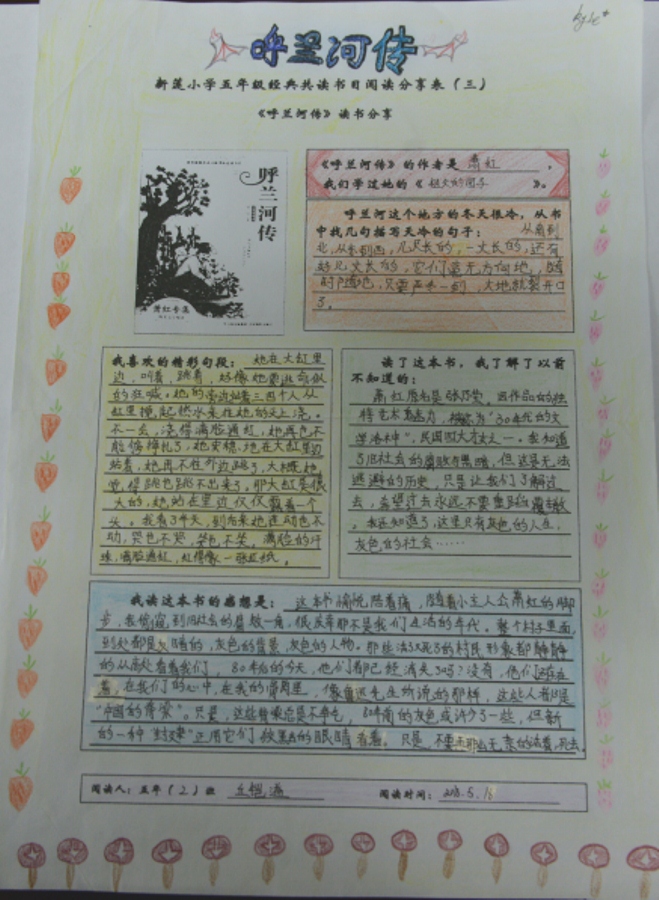 呼兰河传
新莲小学五年级经典共读书目阅读分享表（三）
《呼兰河传》读书分享
呼兰河传
萧红专集
《呼兰河传》的作者是 萧红 ，
我们学过她的《 祖父的园子 》。
呼兰河这个地方的冬天很冷，从书
中找几句描写天冷的句子： 从南到
北，从东到西，几尺长的，一丈长的，还有
好几丈长的，它们毫无方向地，随
时随地，只要严冬一到，大地就裂开口
了。
我喜欢的精彩句段： 她在大缸里
边，叫着，跳着，好像她要逃命似
的狂喊。她的旁边站着三四个人从
缸里搅起热水来往她的头上浇。
不一会，浇得满脸通红，她再也不
能够挣扎了，她安稳地在大缸里边
站着，她再不往外边跳了，大概她
觉得跳也跳不出来了。那大缸是很
大的，她站在里边仅仅露着一个
头。我看了半天，到后来她连动也不
动，哭也不哭，笑也不笑。满脸的汗
珠，满脸通红，红得像一张红纸。
读了这本书，我了解了以前
不知道的：
萧红原名是张乃莹，因作品的独
特艺术魅力，被称为“30年代的文
学洛神”，民国四大才女之一。我知道
了旧社会的腐败与黑暗，但这是无法
逃避的历史，只是让我们了解过
去，希望过去永远不要重蹈覆辙。
我还知道了，这里只有灰色的人生，
灰色的社会……
我读这本书的感想是： 这本书愉悦陪着痛，随着小主人公萧红的脚
步，我
到旧社会的腐败一角，很庆幸那不是我们生活的年代。整个村子里面，
到处都是黑暗的，灰色的背景，灰色的人物。那些
的村民形象都静静
的从
处看着我们，80年后的今天，他们都已经消失了吗？没有，他们还在
着，在我们的心中，在我的骨两里，像鲁迅先生所说的那样，这些人都是
“中国的脊梁”。只是，这些脊梁总是不争气，
的灰色或许少了一些，但新
的一种“封建”正用它们
的眼睛看着。只是，不要
的活着，死去。
阅读人：五年（2）班
阅读时间： 2018.5.18